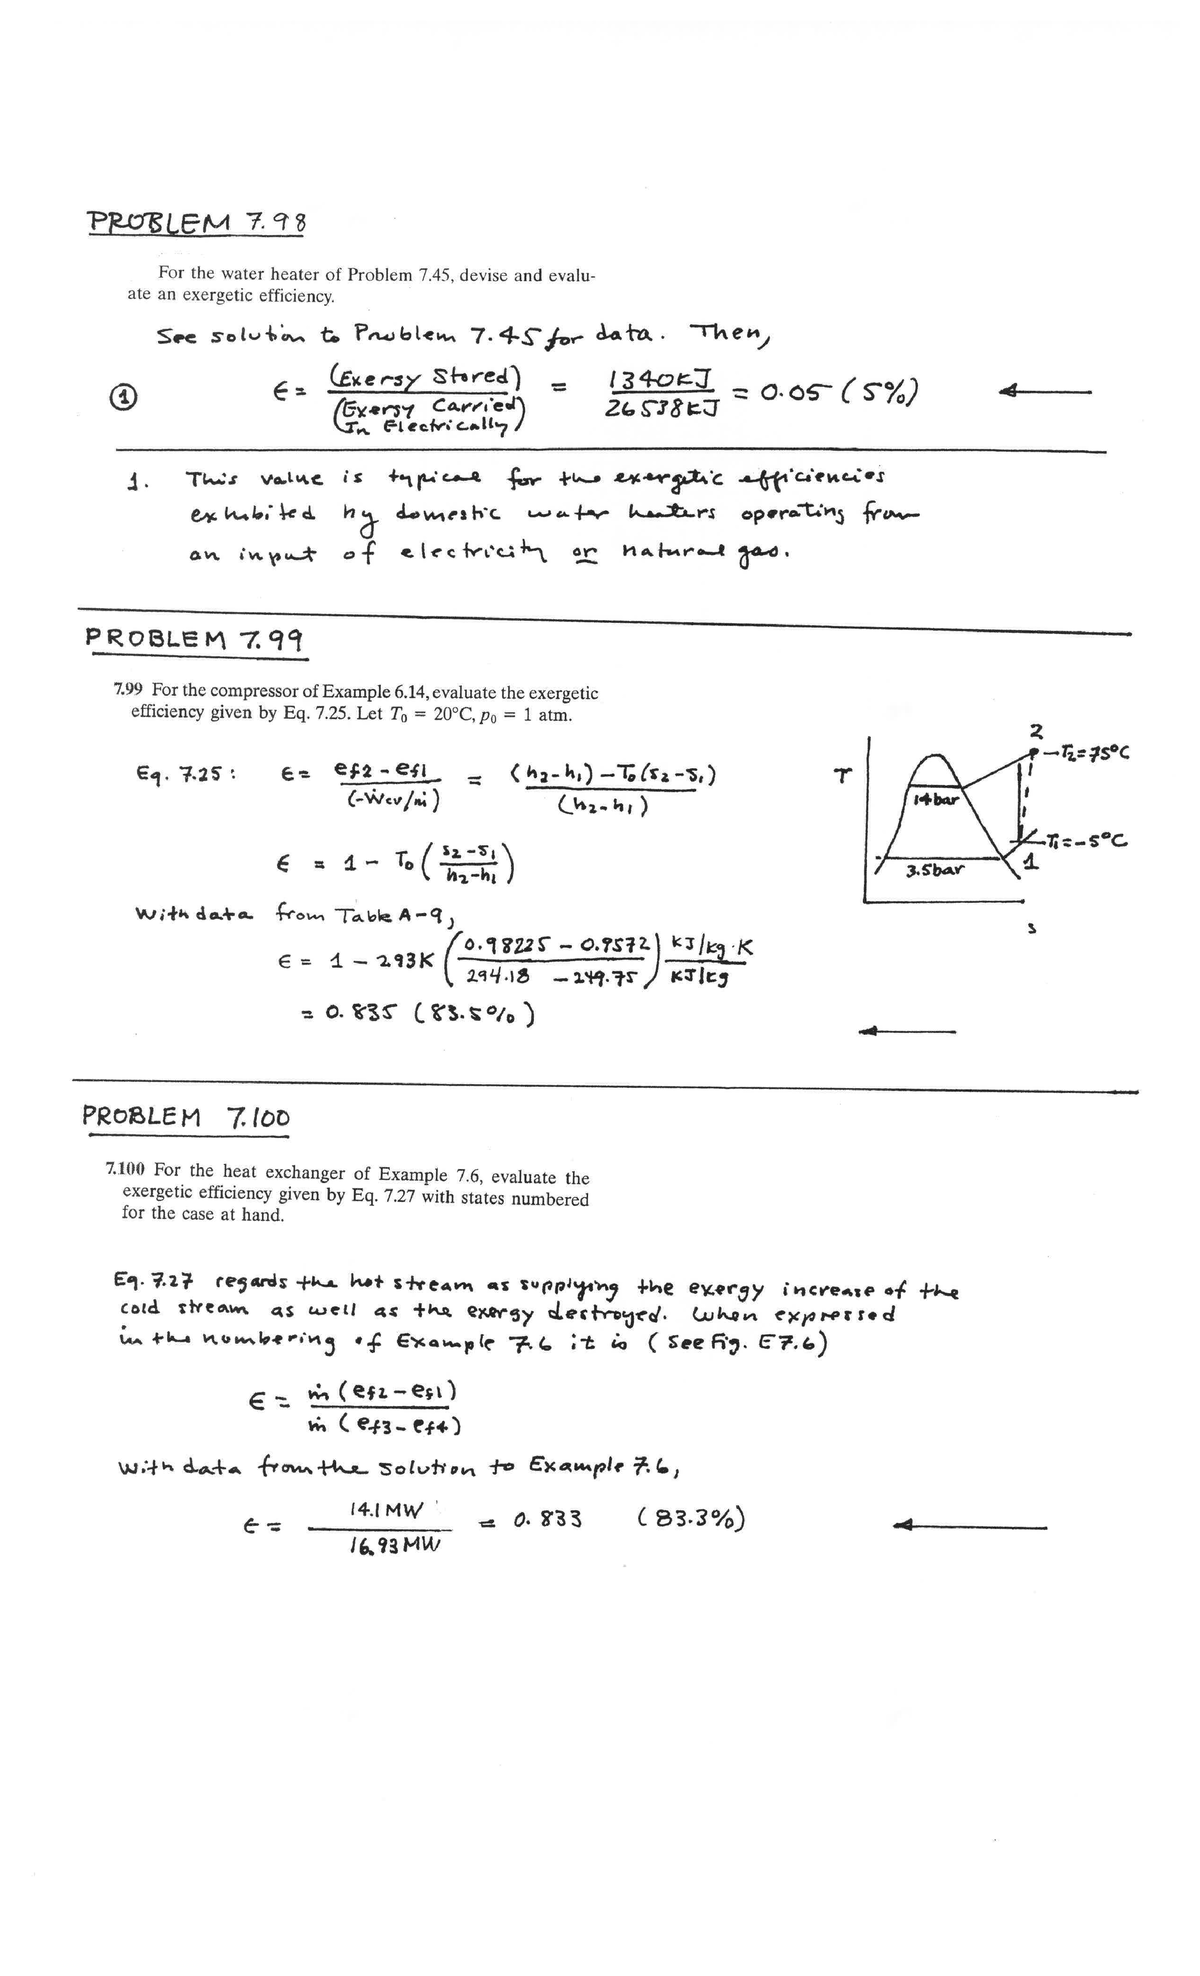 PROBLEM 7.98
For the water heater of Problem 7.45, devise and evalu-
ate an exergetic efficiency.
See solution to Problem 7.45 for data. Then,
① ε = (Exergy Stored) / (Exergy Carried In Electrically) = 1340 kJ / 26538 kJ = 0.05 (5%)
1. This value is typical for the exergetic efficiencies
exhibited by domestic water heaters operating from
an input of electricity or natural gas.
PROBLEM 7.99
7.99 For the compressor of Example 6.14, evaluate the exergetic
efficiency given by Eq. 7.25. Let T0 = 20°C, p0 = 1 atm.
Eq. 7.25 : ε = (ef2 - ef1) / (-Ẇcv/ṁ) = ((h2-h1) - T0(s2-s1)) / (h2-h1)
ε = 1 - T0 ((s2-s1) / (h2-h1))
With data from Table A-9,
ε = 1 - 293K ((0.98225 - 0.9572) / (294.18 - 249.75)) (kJ/kg·K) / (kJ/kg)
= 0.835 (83.5%)
2
T2 = 75°C
T
14 bar
T1 = -5°C
1
3.5 bar
s
PROBLEM 7.100
7.100 For the heat exchanger of Example 7.6, evaluate the
exergetic efficiency given by Eq. 7.27 with states numbered
for the case at hand.
Eq. 7.27 regards the hot stream as supplying the exergy increase of the
cold stream as well as the exergy destroyed. When expressed
in the numbering of Example 7.6 it is (See Fig. E7.6)
ε = ṁ (ef2 - ef1) / ṁ (ef3 - ef4)
With data from the solution to Example 7.6,
ε = 14.1 MW / 16.93 MW = 0.833 (83.3%)